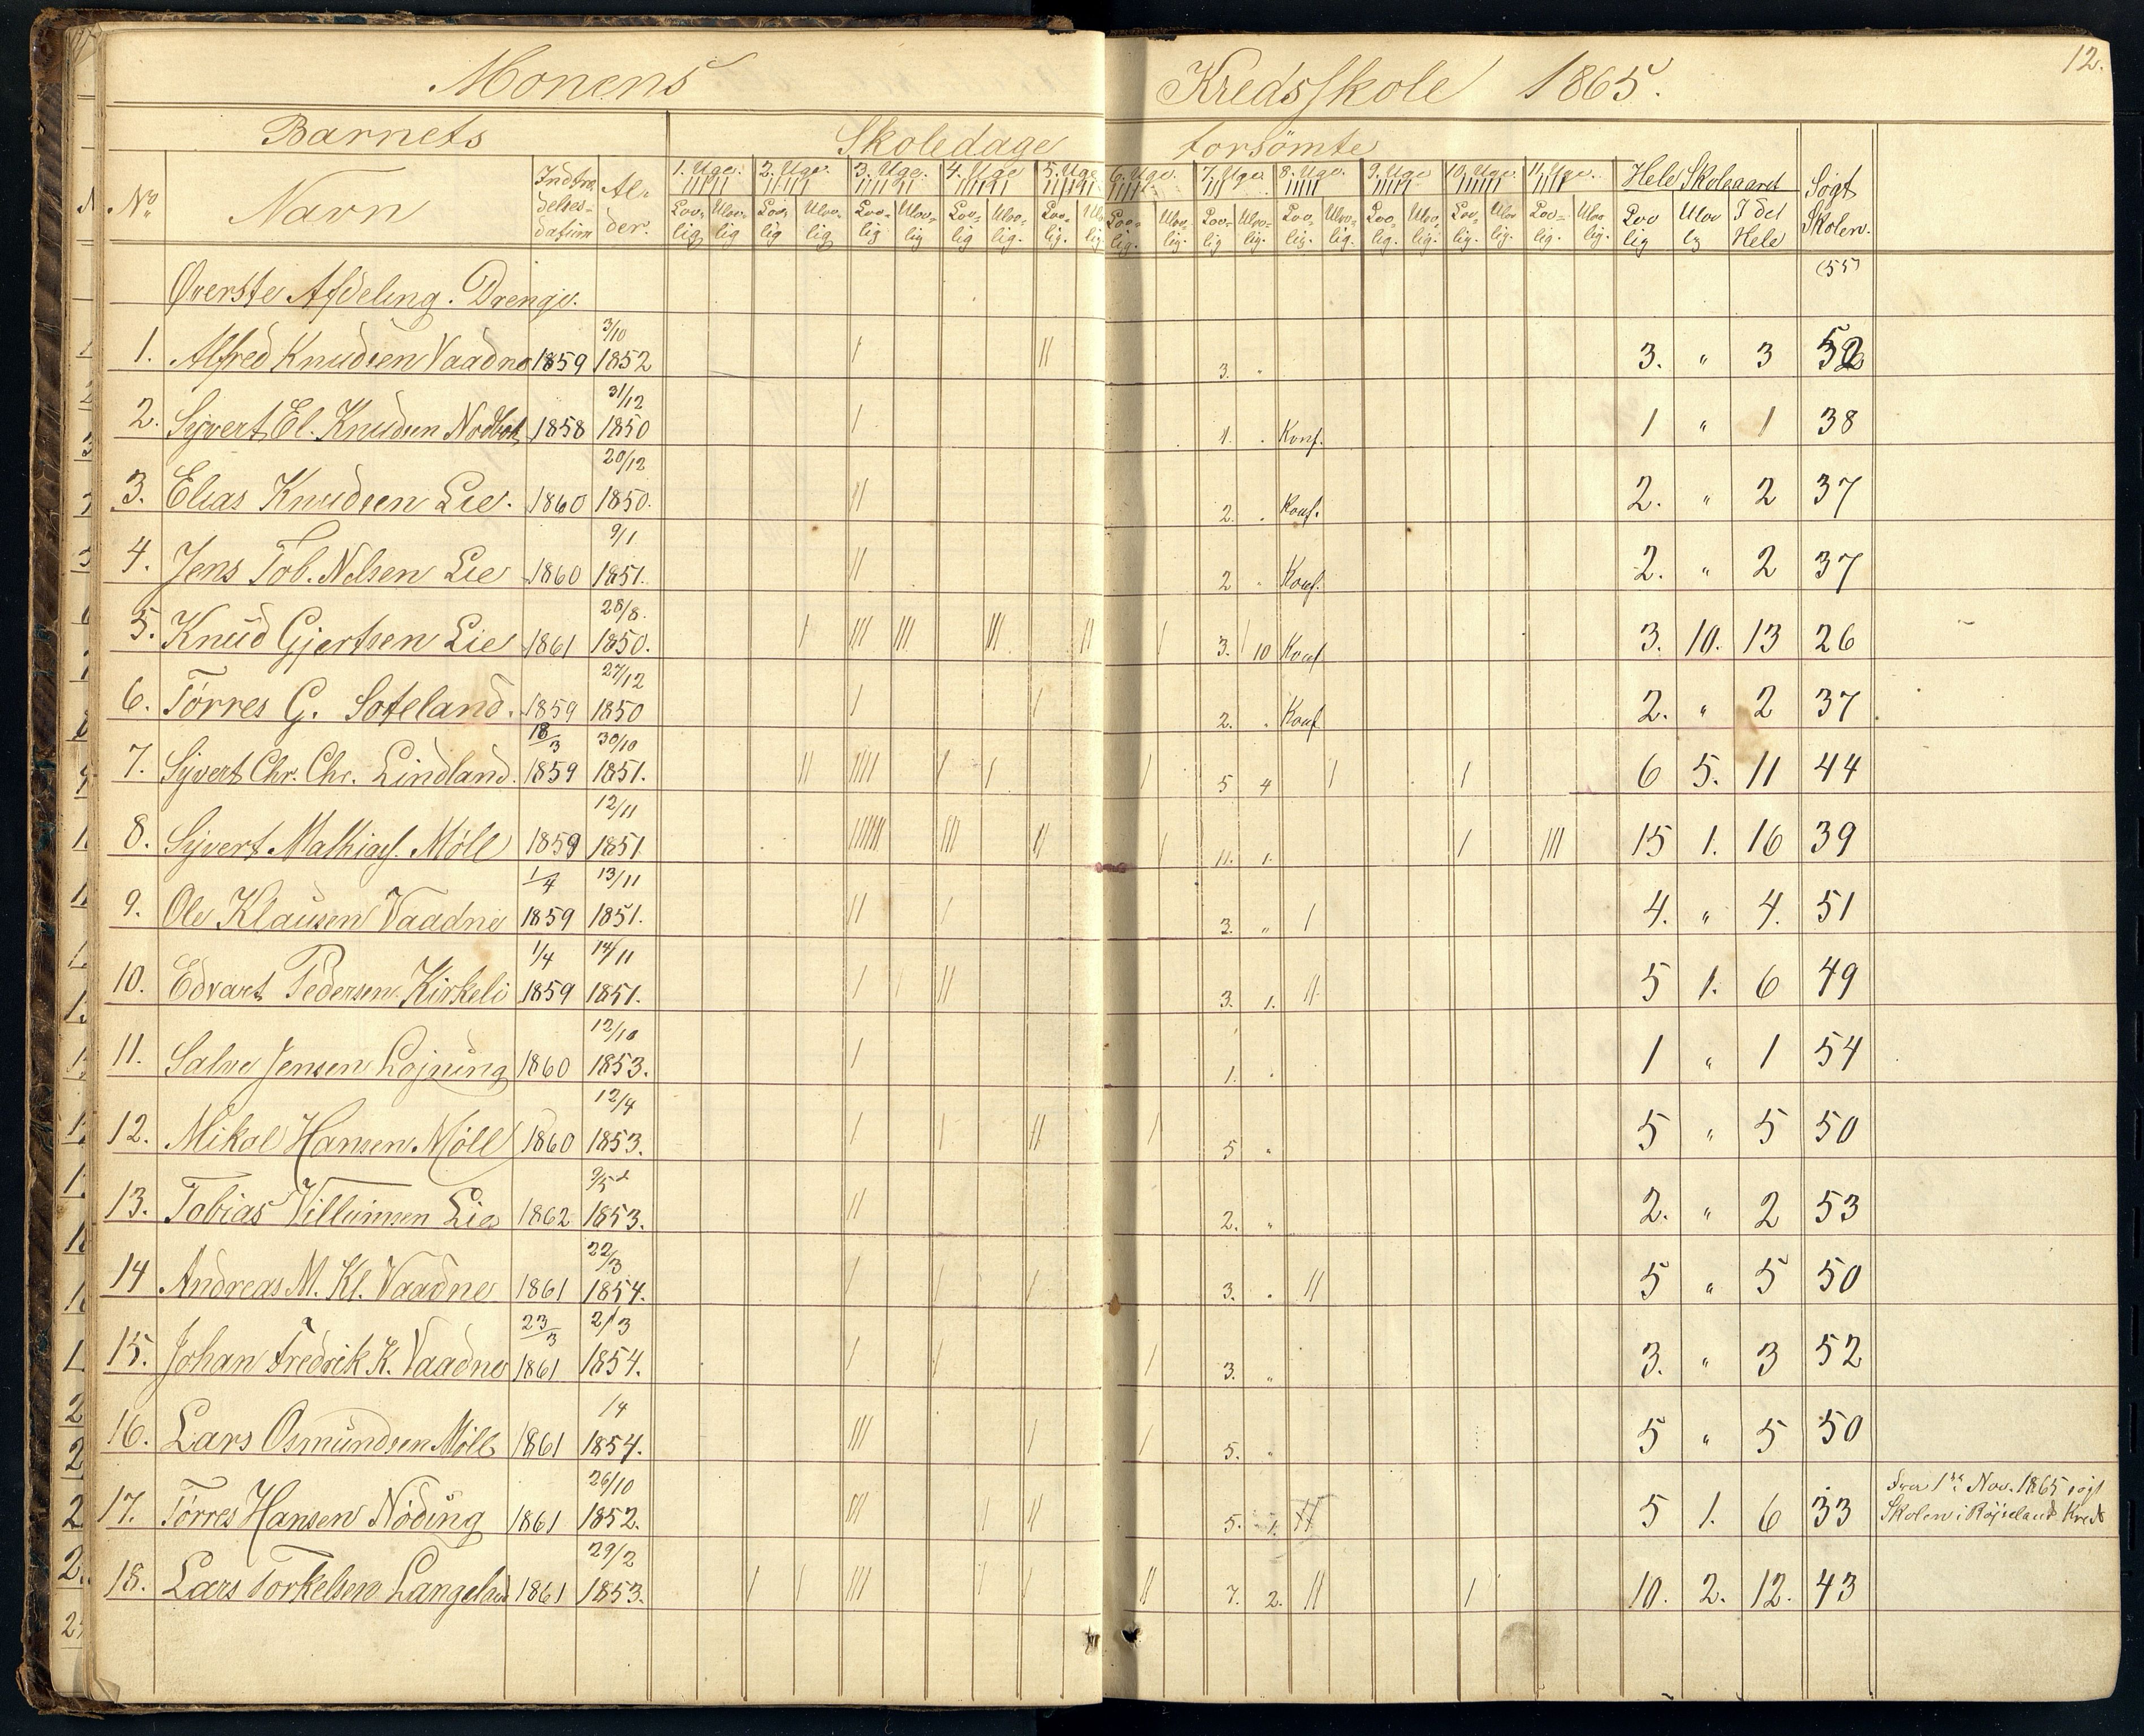 Monens Kredsskole 1865. 12.
Barnets Skoledage forsömte
No Navn Indtrædelses-datum Al-der. 1. Uge. 2. Uge. 3. Uge. 4. Uge 5. Uge 6. Uge. 7. Uge. 8. Uge. 9. Uge 10. Uge. 11. Uge. Hele Skoleaaret Søgt Skolen.
Lov-lig Ulov-lig Lov-lig Ulov-lig Lov-lig Ulov-lig Lov-lig Ulov-lig. Lov-lig. Ulov-lig. Lov-lig. Ulov-lig. Lov-lig Ulov-lig. Lov-lig. Ulov-lig. Lov-lig. Ulov-lig. Lov-lig. Ulov-lig. Lov-lig. Ulov-lig. Lov lig Ulov lg I det Hele
Øverste Afdeling. Drenge. (55)
3/10
1. Alfred Knudsen Vaadne 1859 1852 / // 3. " 3. " 3 52
31/12
2. Syvert El. Knudsen 1858 1850 / 1. . Konf. 1 " 1 38
20/12
3. Elias Knudsen Lie. 1860 1850. // 2. . Konf. 2. " 2 37
9/1
4. Jens Tob. Nelsen Lie 1860 1851. // 2 . Konf. 2. " 2 37
28/8.
5. Knud Gjertsen Lie 1861 1850. / /// /// /// // / 3. / 10 Konf 3. 10. 13 26
27/12
6. Törres G. Soteland. 1859 1850 / / 2. . Konf 2. " 2 37
18/3 30/10
7. Syvert Chr. Chr. Lindland. 1859 1851. // //// / / / 5 4 / / 6 5. 11 44
12/11
8. Syvert Mathias. Möll 1859 1851. ////// /// // / 11. 1. / /// 15 1. 16 39
1/4 13/11
9. Ole Klausen Vaadne 1859 1851. // / 3. " / 4. " 4. 51
1/4 14/11
10. Edvart Pedersen Kirkeli 1859 1851. / / // 3. 1. // 5 1. 6 49
12/10
11. Salve Jensen Lojning 1860 1853. / 1. . 1 " 1 54
12/4
12. Mikal Hansen Möll 1860 1853. / / // / 5 . 5 " 5 50
9/5
13. Tobias Villumsen Lie 1862 1853. // 2. " 2. " 2 53
22/3
14 Andreas M. Kl. Vaadne 1861 1854. / / / 3. . // 5 " 5 50
23/3 2/3
15. Johan Fredrik K. Vaadne 1861 1854. / / / 3. " 3. " 3 52
14
16. Lars Osmundsen Möll 1861 1854. /// / / 5. " 5 " 5 50
26/10
17. Törres Hansen Nöding 1861 1852. /// / // 5. 1. // 5 1. 6 33 Fra 1ste Nov. 1865 søgt
Skolen i Röjseland Kreds
29/2
18. Lars Torkelsen Langeland 1861 1853. / / /// / / // 7. 2. // / 10. 2. 12. 43